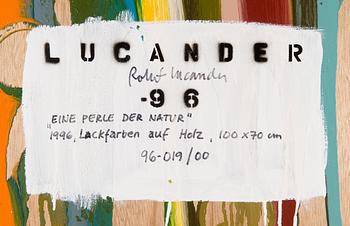 LUCANDER
Robert Lucander
-96
"EINE PERLE DER NATUR"
1996, Lackfarben auf Holz, 100 x 70 cm
96-019/00